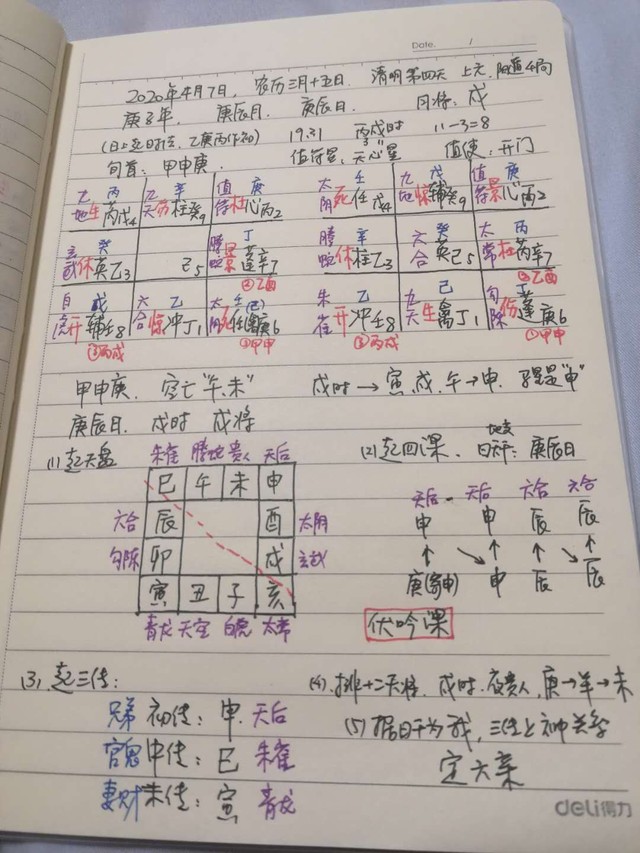 Date. /
2020年4月7日, 农历三月十五日. 清明第四天 上元, 阳遁4局
庚子年. 庚辰月. 庚辰日. 月将: 戌
(日上起时法, 乙庚丙作初) 19:31 丙戌时 11-3=8
旬首: 甲申庚. 值符星: 天心星 值使: 开门
九地 丙 生 丙戌4
九天 辛 伤 柱癸9
值符 庚 杜 心丙2
太阴 壬 死 任戊4
九地 戊 惊 辅癸9
值符 庚 景 心丙2
玄武 癸 休 英乙3
己5
螣蛇 丁 景 蓬辛7
②乙酉
螣蛇 辛 休 柱乙3
六合 癸 英己5
太常 丙 杜 芮辛7
②乙酉
白虎 戊 开 辅壬8
③丙戌
六合 乙 惊 冲丁1
太阴 壬(己) 死 任禽庚6
①甲申
朱雀 乙 开 冲壬8
③丙戌
九天 己 生 禽丁1
勾陈 丁 伤 蓬庚6
①甲申
甲申庚. 空亡"午.未" 戌时→寅.戌.午→申. 驿马是"申"
庚辰日. 戌时 戌将
(1)起天盘
朱雀 螣蛇 贵人 天后
巳 午 未 申
六合 辰 酉 太阴
勾陈 卯 戌 玄武
寅 丑 子 亥
青龙 天空 白虎 太常
(2)起四课. 日干支: 庚辰日
天后 天后 六合 六合
申 申 辰 辰
庚(寄申) 申 辰 辰
伏吟课
(3). 起三传:
兄弟 初传: 申. 天后
官鬼 中传: 巳 朱雀
妻财 末传: 寅 青龙
(4). 排十二天将. 戌时. 夜贵人, 庚→羊→未
(5) 据日干为我, 三传与神关系
定六亲
deli得力